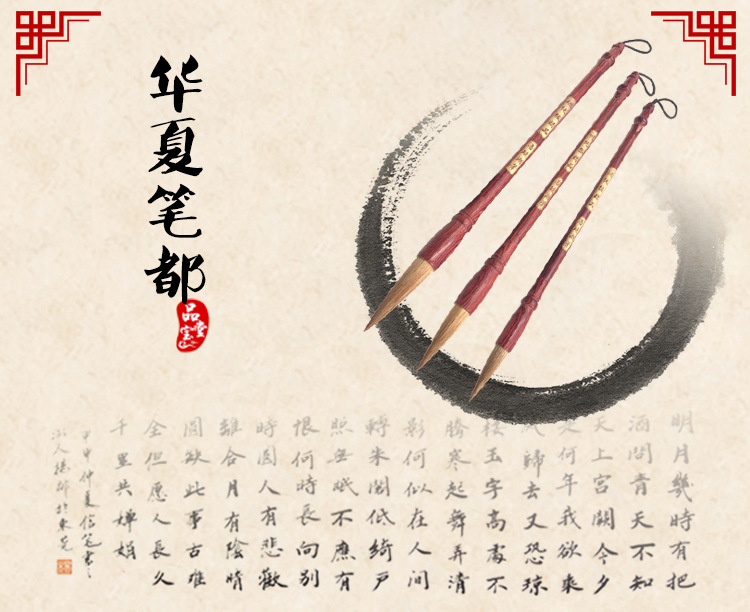 华夏笔都
明月幾時有把
酒問青天不知
天上宮闕今夕
是何年我欲乘
歸去又恐琼
樓玉宇高處不
勝寒起舞弄清
影何似在人間
轉朱閣低綺戶
照無眠不應有
恨何時長向別
時圓人有悲歡
離合月有陰晴
圓缺此事古難
全但愿人長久
千里共嬋娟
甲申仲夏信笔書之